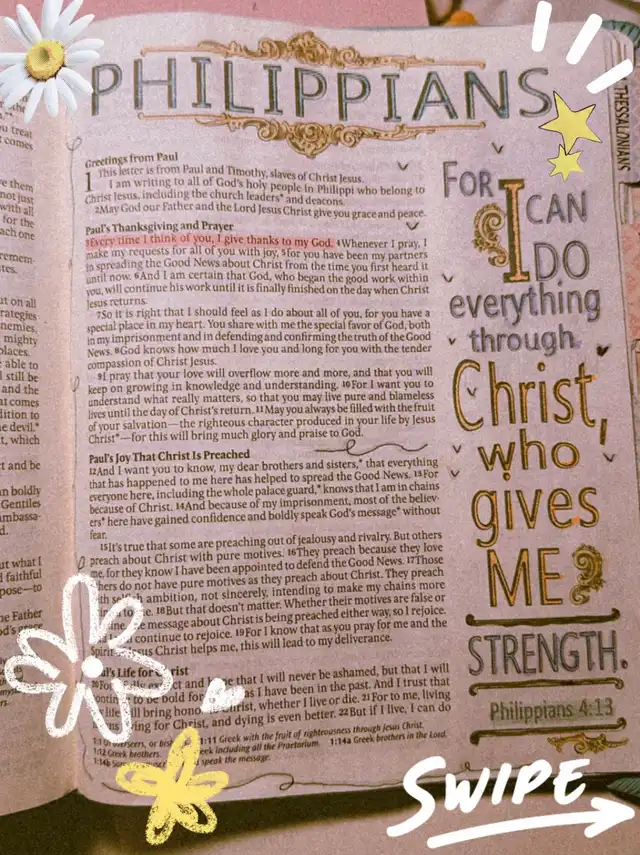 PHILIPPIANS
THESSALONIANS
u treat
comes
ve them
not just
with all
for the
each one
remem-
tes.
ut on all
rategies
nemies,
mighty
places.
able to
still be
and the
at comes
dition to
e devil.*
t, which
rt and be
n boldly
Gentiles
ambassa-
d.
ut what I
faithful
pose—to
e Father
Greetings from Paul
1 This letter is from Paul and Timothy, slaves of Christ Jesus.
I am writing to all of God's holy people in Philippi who belong to
Christ Jesus, including the church leaders* and deacons.
2May God our Father and the Lord Jesus Christ give you grace and peace.
Paul's Thanksgiving and Prayer
3Every time I think of you, I give thanks to my God. 4Whenever I pray, I
make my requests for all of you with joy, 5for you have been my partners
in spreading the Good News about Christ from the time you first heard it
until now. 6And I am certain that God, who began the good work within
you, will continue his work until it is finally finished on the day when Christ
Jesus returns.
7So it is right that I should feel as I do about all of you, for you have a
special place in my heart. You share with me the special favor of God, both
in my imprisonment and in defending and confirming the truth of the Good
News. 8God knows how much I love you and long for you with the tender
compassion of Christ Jesus.
9I pray that your love will overflow more and more, and that you will
keep on growing in knowledge and understanding. 10For I want you to
understand what really matters, so that you may live pure and blameless
lives until the day of Christ's return. 11May you always be filled with the fruit
of your salvation—the righteous character produced in your life by Jesus
Christ*—for this will bring much glory and praise to God.
Paul's Joy That Christ Is Preached
12And I want you to know, my dear brothers and sisters,* that everything
that has happened to me here has helped to spread the Good News. 13For
everyone here, including the whole palace guard,* knows that I am in chains
because of Christ. 14And because of my imprisonment, most of the believ-
ers* here have gained confidence and boldly speak God's message* without
fear.
15It's true that some are preaching out of jealousy and rivalry. But others
preach about Christ with pure motives. 16They preach because they love
me, for they know I have been appointed to defend the Good News. 17Those
others do not have pure motives as they preach about Christ. They preach
ambition, not sincerely, intending to make my chains more
18But that doesn't matter. Whether their motives are false or
message about Christ is being preached either way, so I rejoice.
continue to rejoice. 19For I know that as you pray for me and the
Spirit Jesus Christ helps me, this will lead to my deliverance.
Paul's Life for Christ
20For and that I will never be ashamed, but that I will
to be bold for as I have been in the past. And I trust that
life will bring honor Christ, whether I live or die. 21For to me, living
for Christ, and dying is even better. 22But if I live, I can do
1:1 Or overseers, or 1:11 Greek with the fruit of righteousness through Jesus Christ.
1:12 Greek brothers. including all the Praetorium. 1:14a Greek brothers in the Lord.
1:14b speak the message.
FOR
I CAN
DO
everything
through
Christ,
who
gives
ME
STRENGTH.
Philippians 4:13
SWIPE